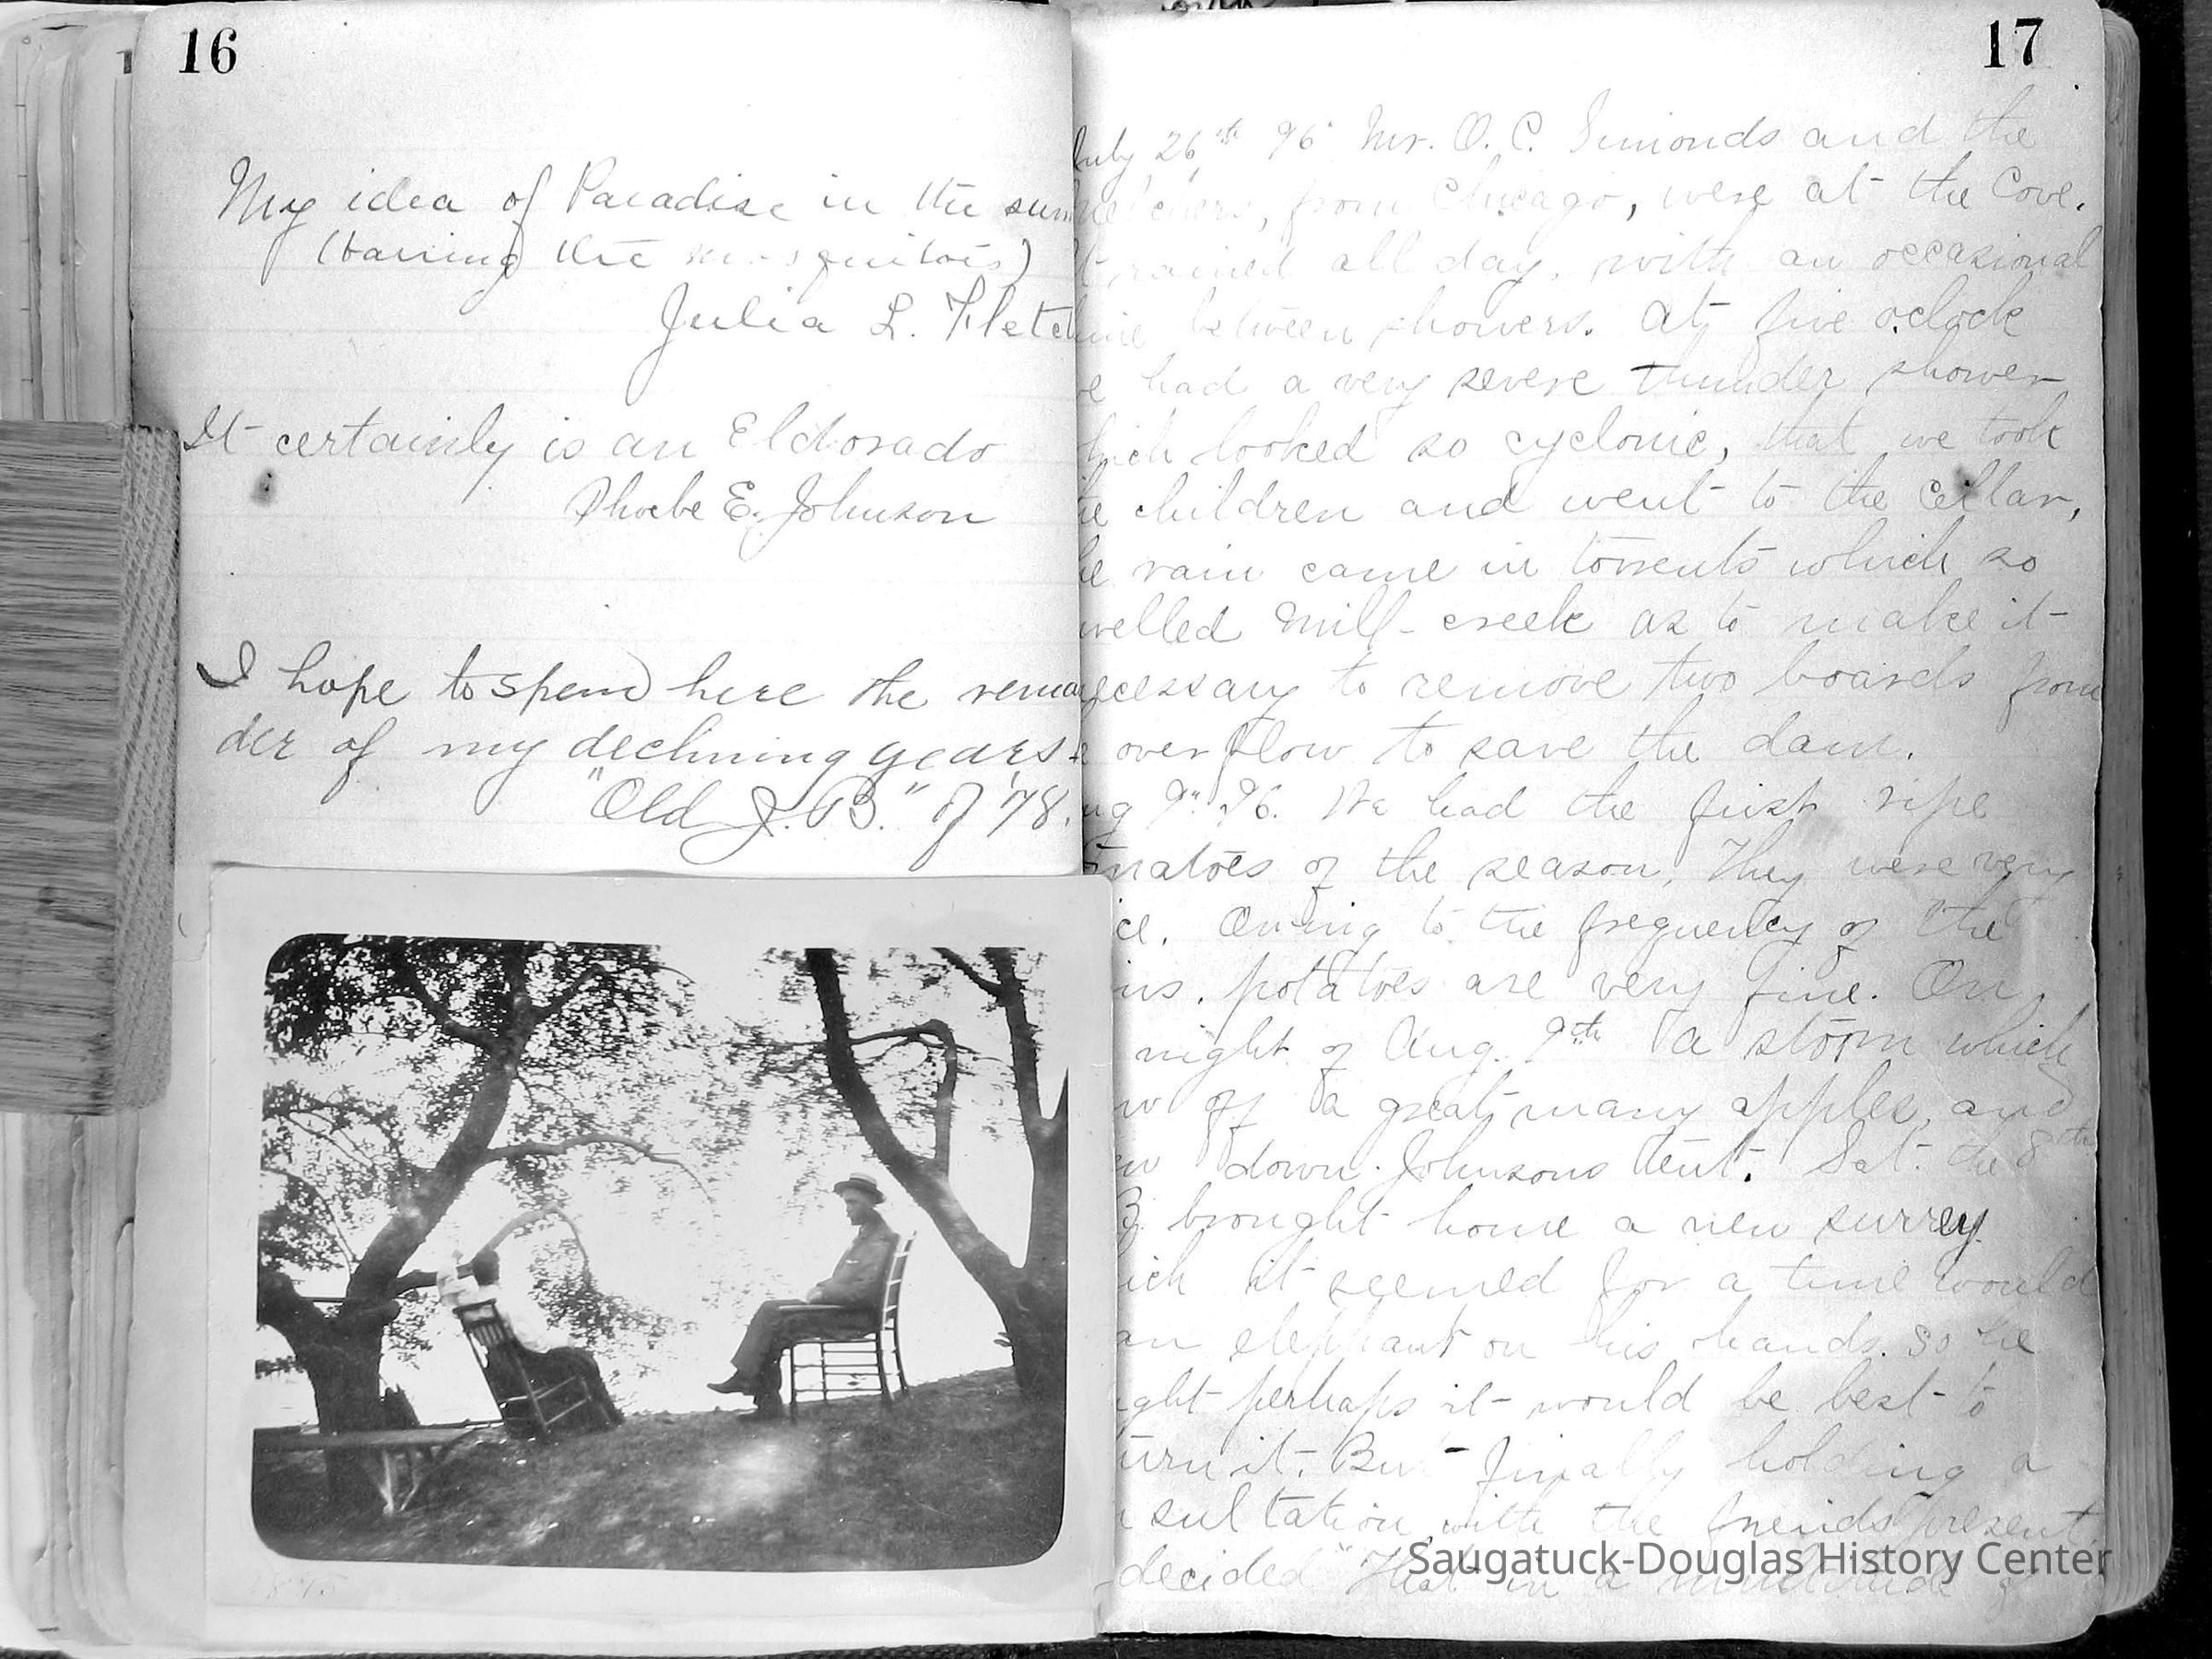 16
My idea of Paradise in the sum
(barring the mosquitoes)
Julia L. Fletch
It certainly is an Eldorado
Phoebe E. Johnson
I hope to spend here the remai
der of my declining years
"Old J. B." of '78.
17
July 26th 96 Mr. O. C. Simonds and the
from Chicago, were at the Cove.
It rained all day, with an occasional
between showers. At five oclock
had a very severe thunder shower
which looked so cyclonic, that we took
the children and went to the cellar,
rain came in torrents which so
welled Mill-creek as to make it
ecessary to remove two boards from
overflow to save the dam.
ug 9" 96. We had the first ripe
matoes of the season. They were very
ice. Owing to the frequency of the
ins, potatoes are very fine. On
night of Aug. 9th a storm which
w off a great many apples, and
ew down Johnsons tent. Sat. the 8th
B brought home a new surrey
ich it seemed for a time would
an elephant on his hands. So he
ught perhaps it would be best to
turn it. But finally holding a
sultation with the friends present
decided "That in a multitude of
Saugatuck-Douglas History Center